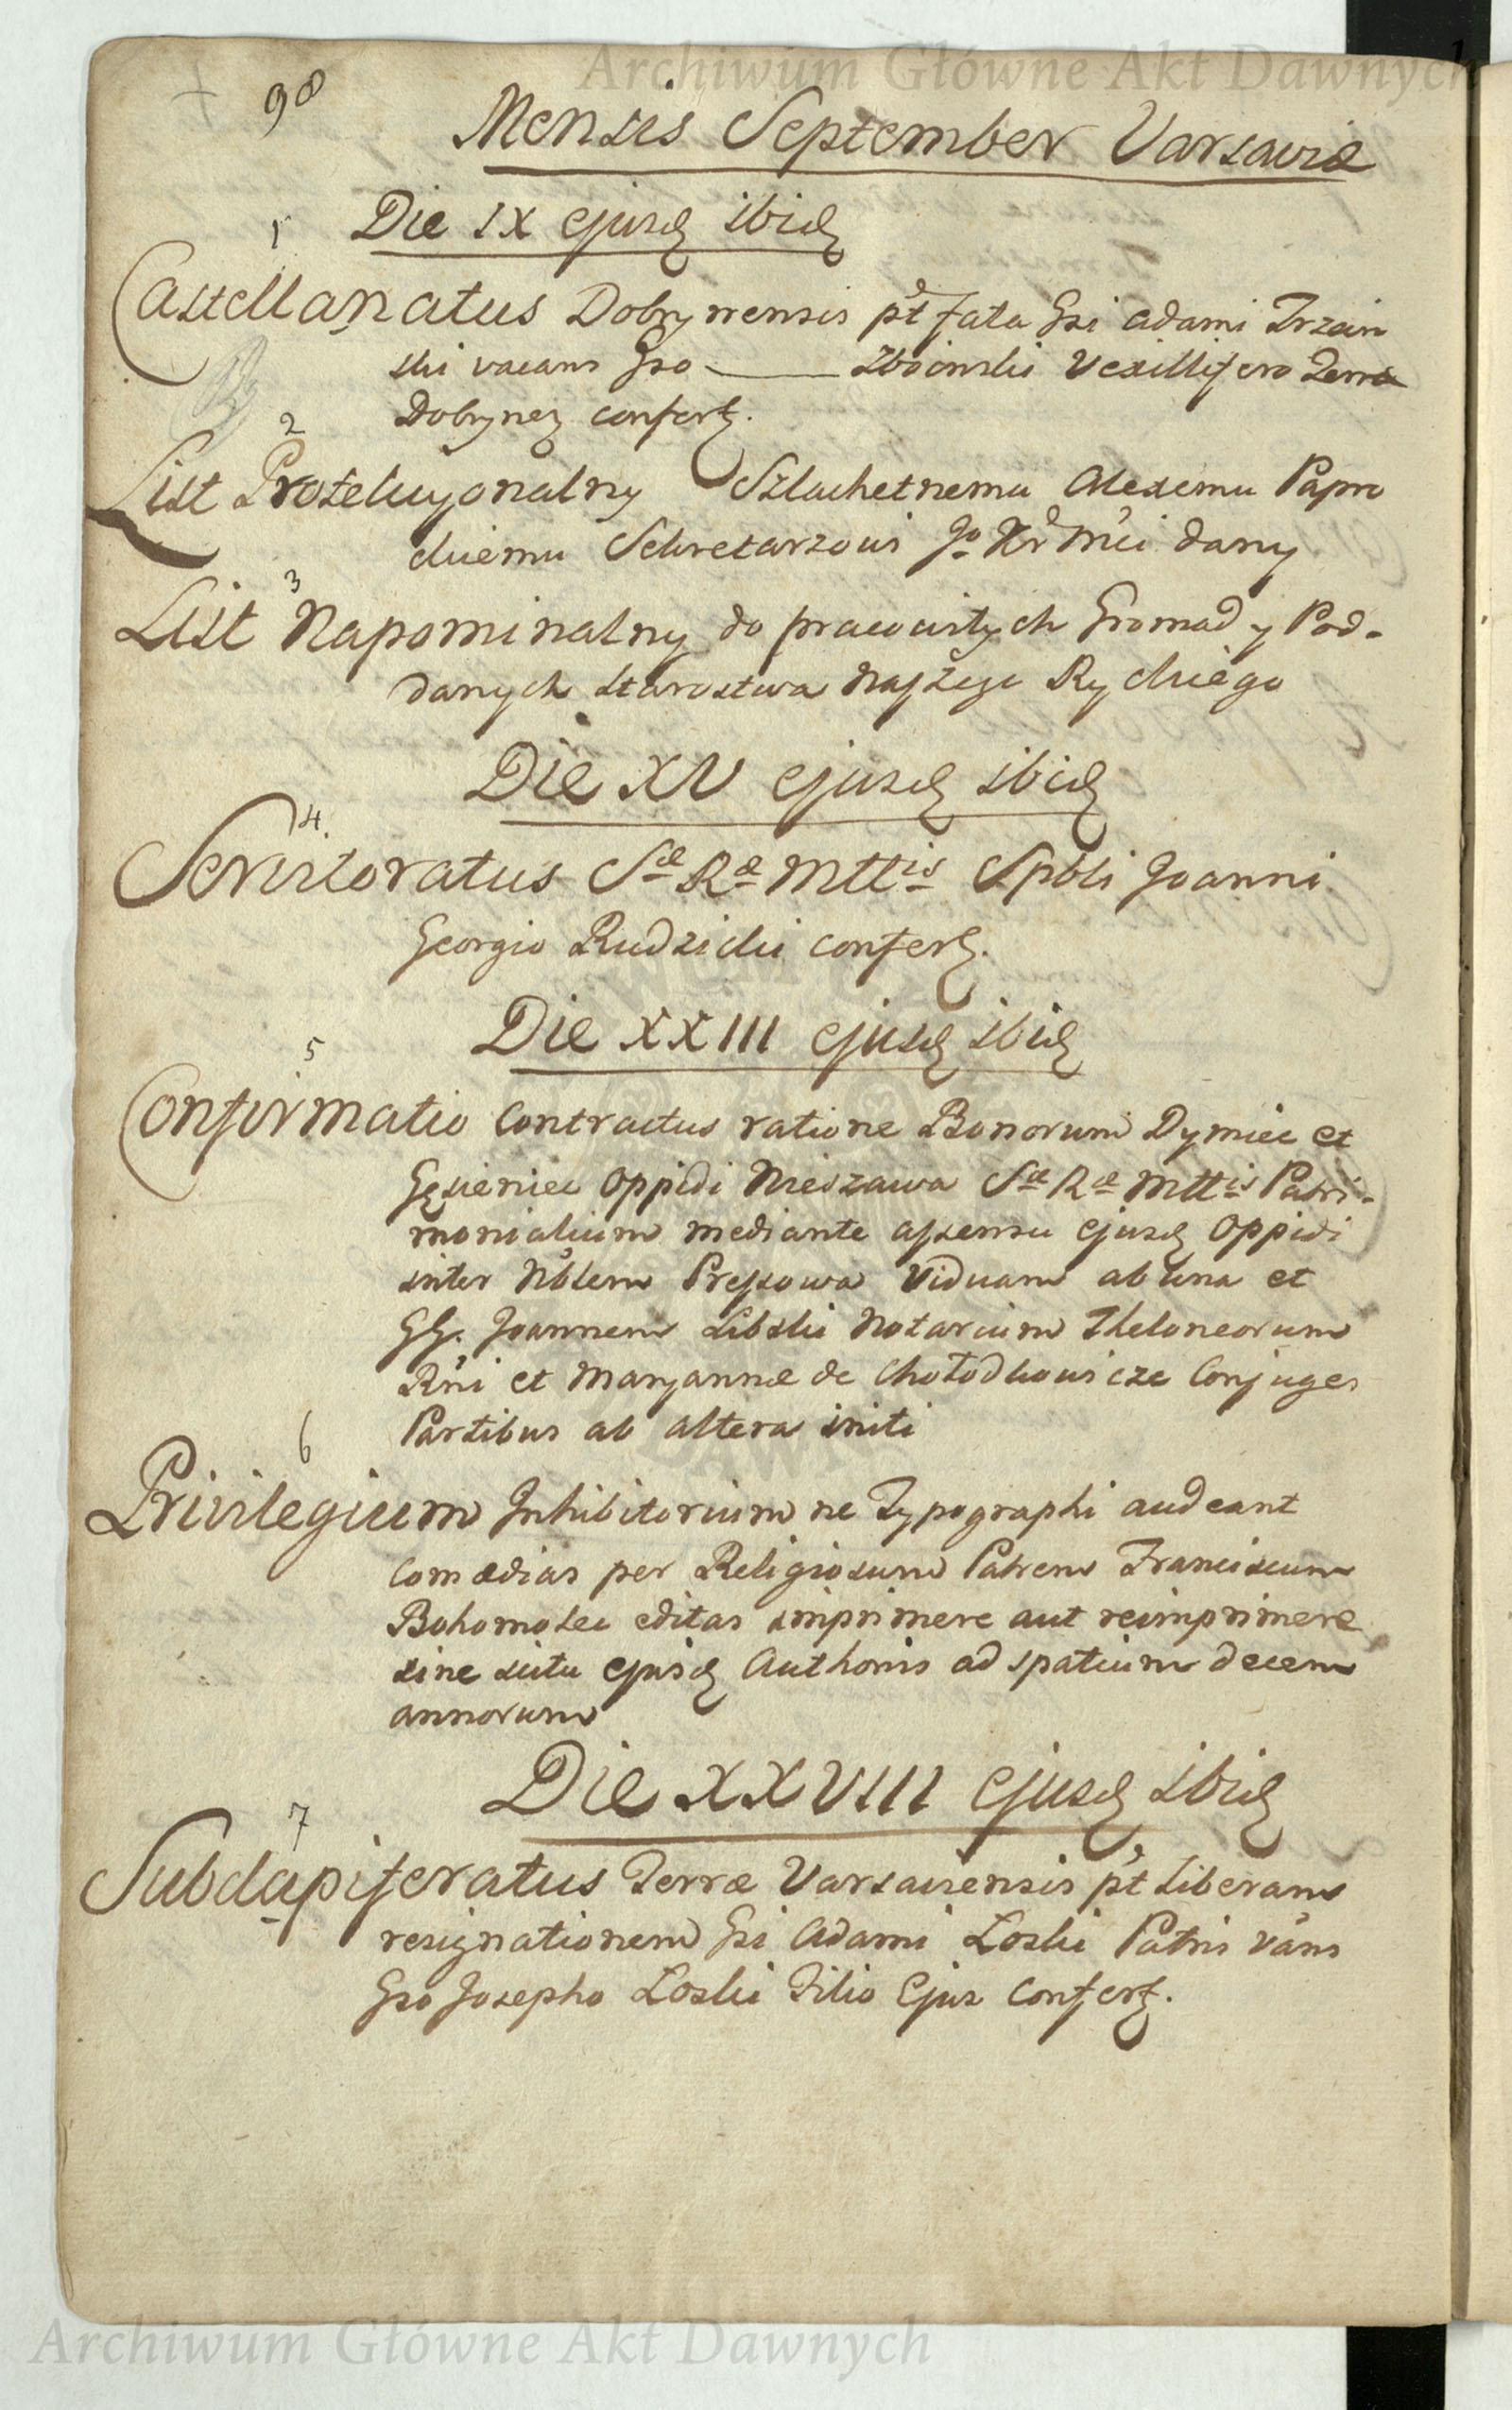 Archiwum Główne Akt Dawnych
98
Mensis September Varsaviæ
Die IX ejusd ibid
1
Castellanatus Dobrynensis pt fata Gsi Adami Trzcin
ski vacans Gso ——— Zboinski Vexillifero Terræ
Dobrynen confert.
2
List Protekcyonalny Szlachetnemu Alexemu Papro
ckiemu Sekretarzowi Jo Kr Mci dany
3
List Napominalny do pracowitych Gromad y Pod-
danych Starostwa naszego Ryckiego
Die XV ejusd ibid
4.
Servitoratus Sæ Ræ Mttis Spbli Joanni
Georgio Rudzicki confert.
Die XXIII ejusd ibid
5
Confirmatio Contractus ratione Bonorum Dymiec et
Gęsieniec Oppidi Nieszawa Sæ Ræ Mttis Patri-
monialium mediante assensu ejusd Oppidi
inter Nblem Pressowa Viduam ab una et
GG. Joannem Libski Notarium Theloneorum
Rni et Maryannæ de Chołodkowicze Conjuges
Partibus ab altera initi
6
Privilegium Inhibitorium ne Typographi audeant
Comædias per Religiosum Patrem Franciscum
Bohomolec editas imprimere aut reimprimere
sine scitu ejusd Authoris ad spatium decem
annorum
Die XXVIII ejusd ibid
7
Subdapiferatus Terræ Varsaviensis pt liberam
resignationem Gsi Adami Łoski Patris vans
Gso Josepho Łoski Filio Ejus Confert.
Archiwum Główne Akt Dawnych